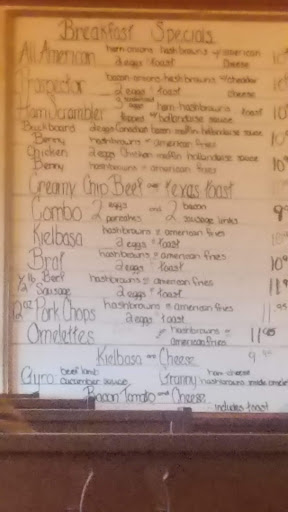 Breakfast Specials
All American ham onions hashbrowns w/ american 10
2 eggs toast cheese
Prospector bacon onions hashbrowns w/ cheddar
2 eggs toast cheese
Ham Scrambler egg ham hashbrowns toast 10
topped w/ hollandaise sauce
Backboard 2 eggs Canadian bacon muffin hollandaise sauce 10
Benny hashbrowns or american fries
Chicken 2 eggs Chicken muffin hollandaise sauce 10
Benny hashbrowns or american fries
Creamy Chip Beef on Texas toast
Combo 2 eggs and 2 bacon 9
2 pancakes 2 sausage links
Kielbasa hashbrowns or american fries
2 eggs toast
Brat hashbrowns or american fries 10
2 eggs toast
½ lb Beef hashbrowns or american fries 11
Sausage 2 eggs toast
12oz Pork Chops hashbrowns or american fries 11
2 eggs toast
Omelettes hashbrowns or 11
american fries
Kielbasa and Cheese 9
Gyro beef lamb Granny ham cheese
cucumber sauce hashbrowns inside omelette
Bacon Tomato and Cheese
includes toast